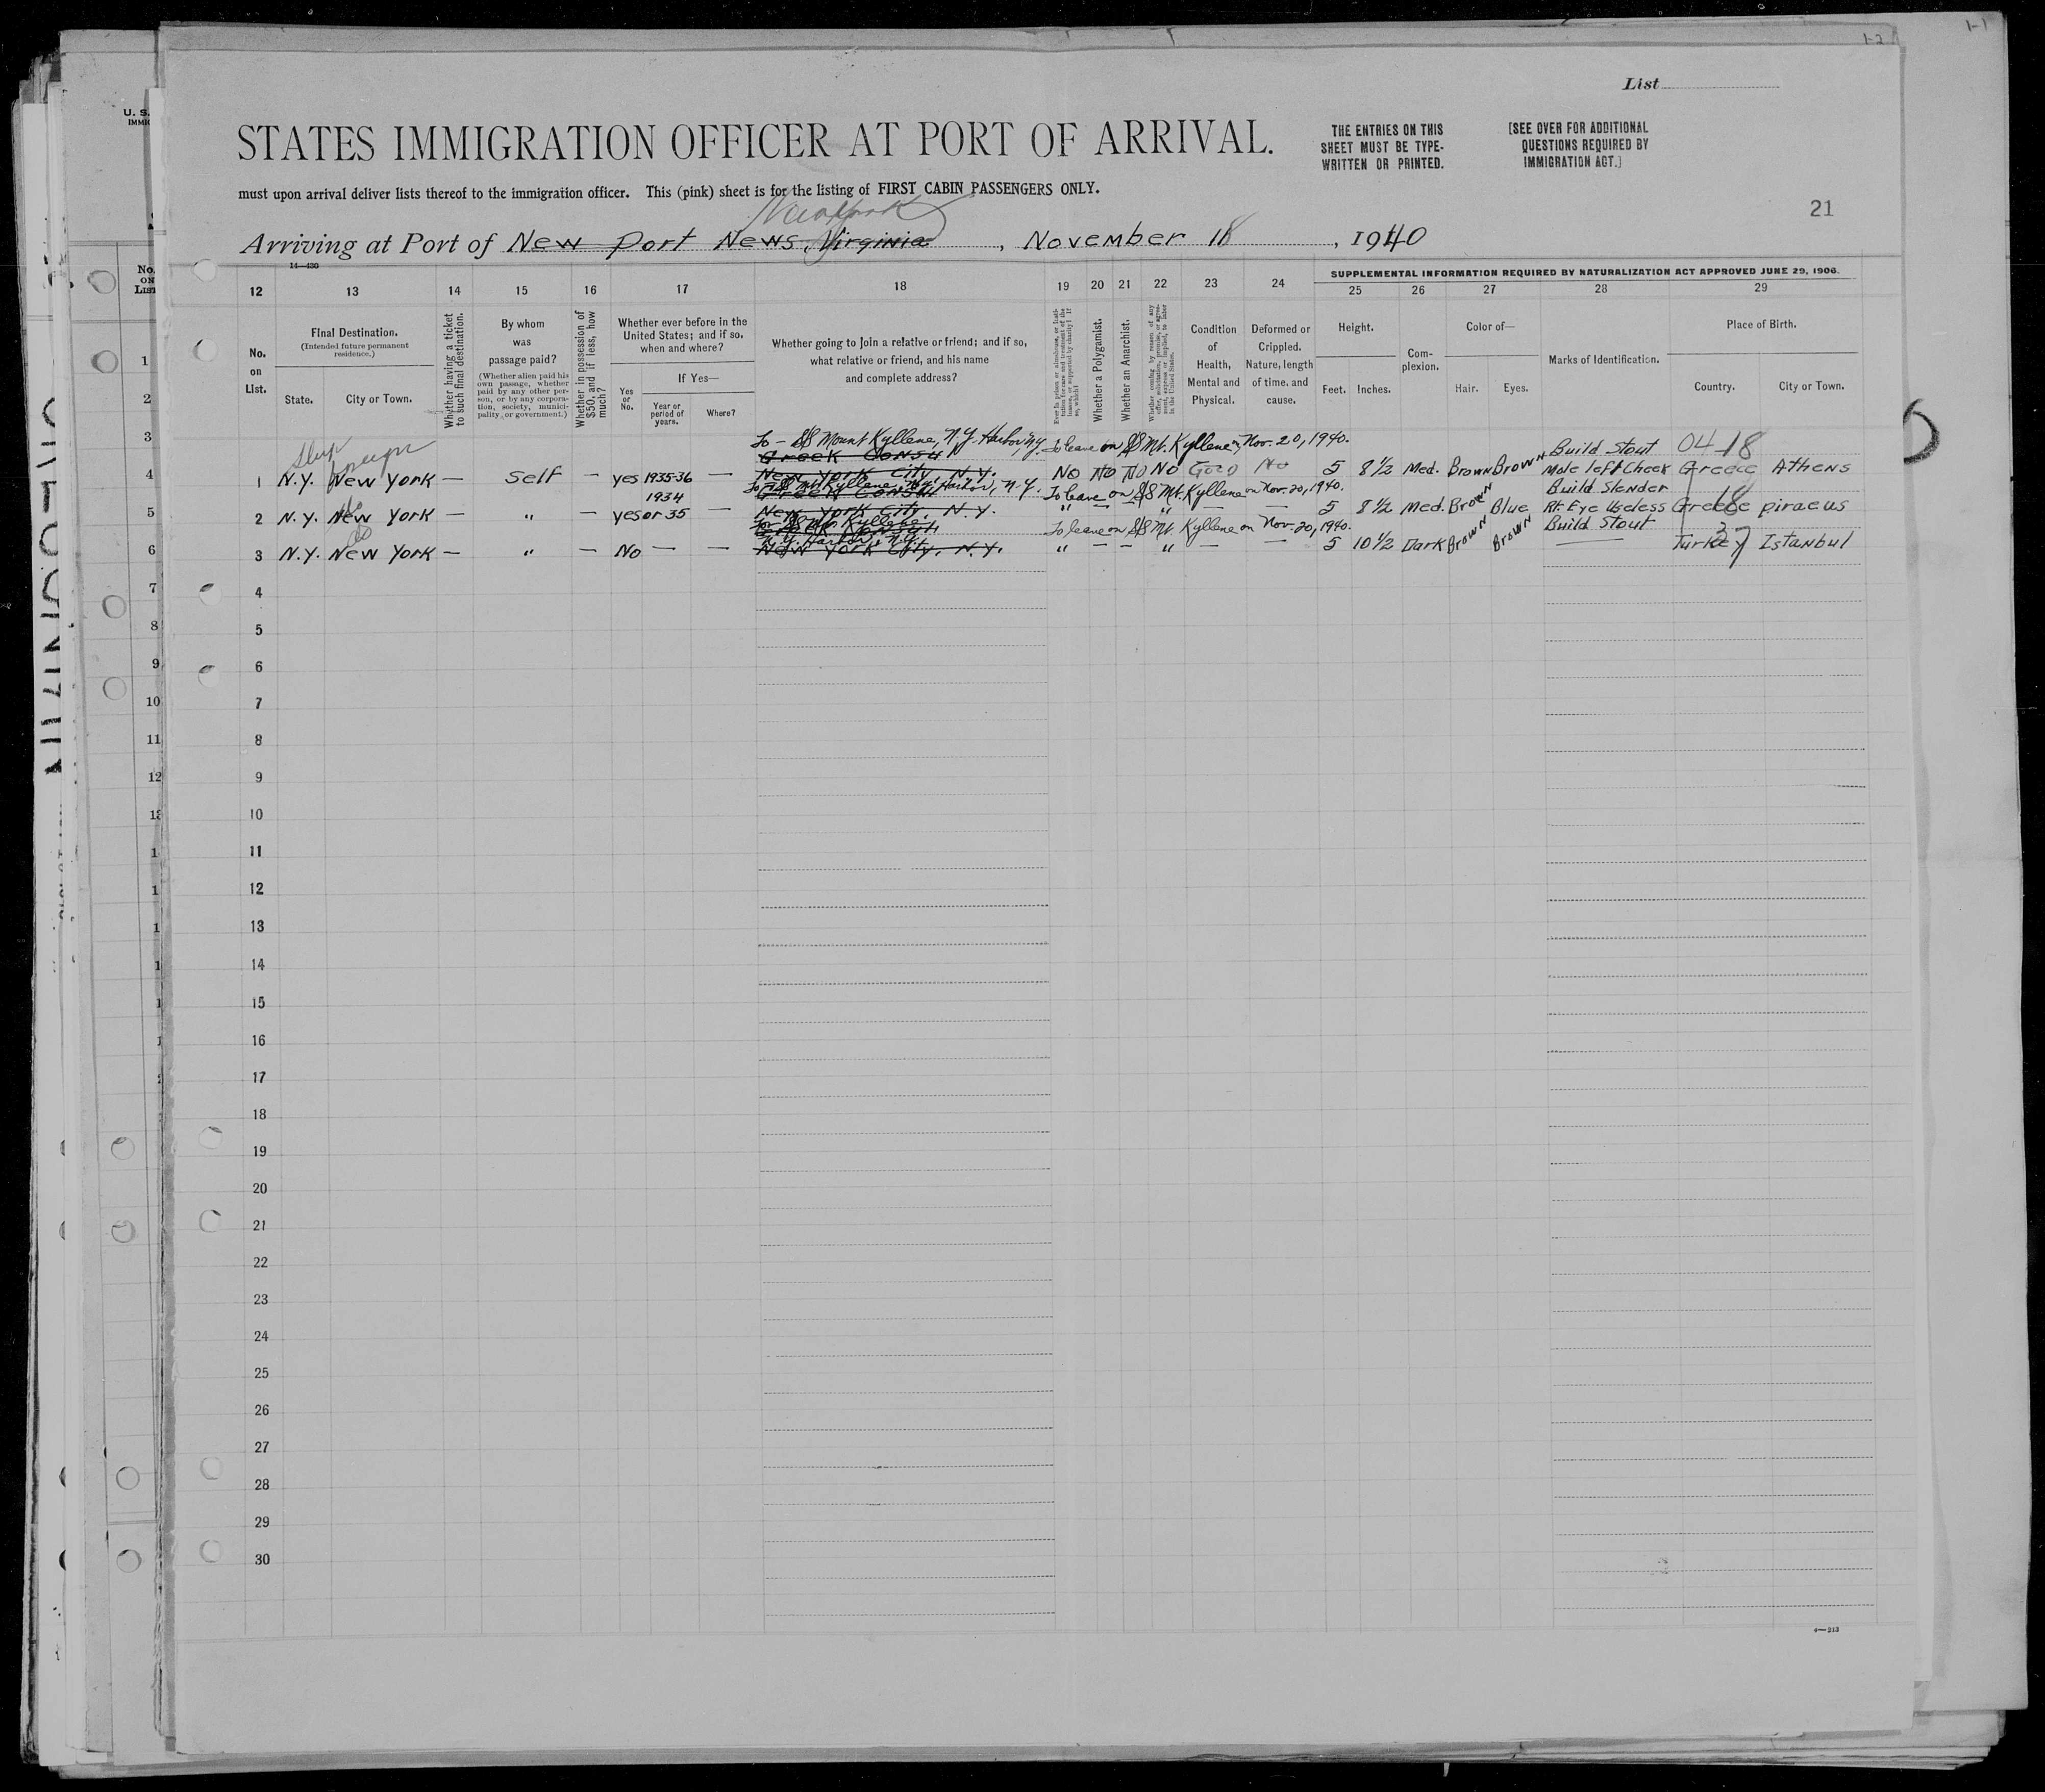 1-1
1-2
List
STATES IMMIGRATION OFFICER AT PORT OF ARRIVAL.
THE ENTRIES ON THIS
SHEET MUST BE TYPE-
WRITTEN OR PRINTED.
[SEE OVER FOR ADDITIONAL
QUESTIONS REQUIRED BY
IMMIGRATION ACT.]
must upon arrival deliver lists thereof to the immigration officer. This (pink) sheet is for the listing of FIRST CABIN PASSENGERS ONLY.
21
New York
Arriving at Port of New port News, Virginia, November 18, 1940
14—430
U. S.
No.
ON
LIST
SUPPLEMENTAL INFORMATION REQUIRED BY NATURALIZATION ACT APPROVED JUNE 29, 1906.
12 13 14 15 16 17 18 19 20 21 22 23 24 25 26 27 28 29
No.
on
List.
Final Destination.
(Intended future permanent
residence.)
State. City or Town.
Whether having a ticket
to such final destination.
By whom
was
passage paid?
(Whether alien paid his
own passage, whether
paid by any other per-
son, or by any corpora-
tion, society, munici-
pality, or government.)
Whether in possession of
$50, and if less, how
much?
Whether ever before in the
United States; and if so,
when and where?
Yes
or
No.
If Yes—
Year or
period of
years.
Where?
Whether going to join a relative or friend; and if so,
what relative or friend, and his name
and complete address?
Whether a Polygamist.
Whether an Anarchist.
Condition
of
Health,
Mental and
Physical.
Deformed or
Crippled.
Nature, length
of time, and
cause.
Height.
Feet. Inches.
Com-
plexion.
Color of—
Hair. Eyes.
Marks of Identification.
Place of Birth.
Country. City or Town.
To - SS Mount Kyllene, N.Y. Harbor, N.Y. To leave on SS Mt. Kyllene on Nov. 20, 1940. Build Stout 04 18
Greek Consul
1 N.Y. New York — Self — yes 1935-36 — New York City, N.Y. No No No No Good No 5 8 1/2 Med. Brown Brown Mole left Cheek Greece Athens
To SS Mt. Kyllene, N.Y. Harbor, N.Y. To leave on SS Mt. Kyllene on Nov. 20, 1940. Build Slender
1934 Greek Consul
2 N.Y. New York — " — yes or 35 — New York City, N.Y. " — — " — — 5 8 1/2 Med. Brown Blue Rt. Eye Useless Greece piraeus
18
To SS Mt. Kyllene To leave on SS Mt. Kyllene on Nov. 20, 1940. Build Stout
Greek Consul
N.Y. Harbor, N.Y.
3 N.Y. New York — " — No — — New York City, N.Y. " — — " — — 5 10 1/2 Dark Brown Brown — Turkey Istanbul
37
4
5
6
7
8
9
10
11
12
13
14
15
16
17
18
19
20
21
22
23
24
25
26
27
28
29
30
4—213